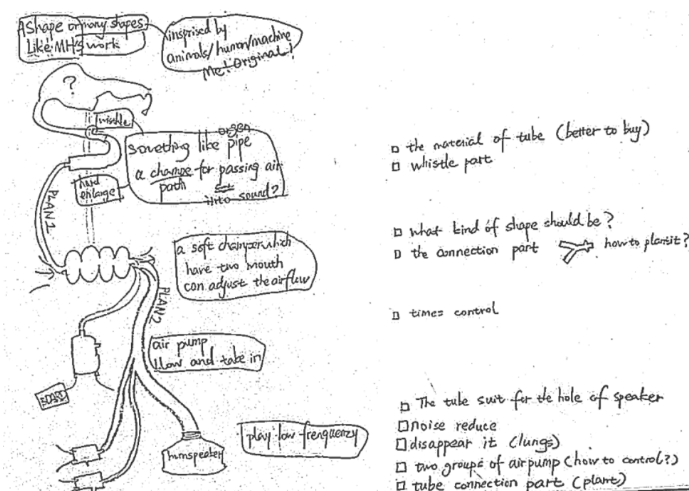 A Shape or many shapes
Like MH's work
insprised by
animals/human/machine
?
Twinkle
organ
someting like pipe
a change for passing air
path
into sound?
enlarge
PLAN1
a soft champer which
have two mouth
can adjust the airflow
PLAN2
air pump
and take in
play low frenquezy
speaker
the material of tube (better to buy)
whistle part
what kind of shape should be?
the connection part
how to plant it?
times control
The tube suit for the hole of speaker
noise reduce
disappear it (lungs)
two groups of airpump (how to control?)
tube connection part (plant)